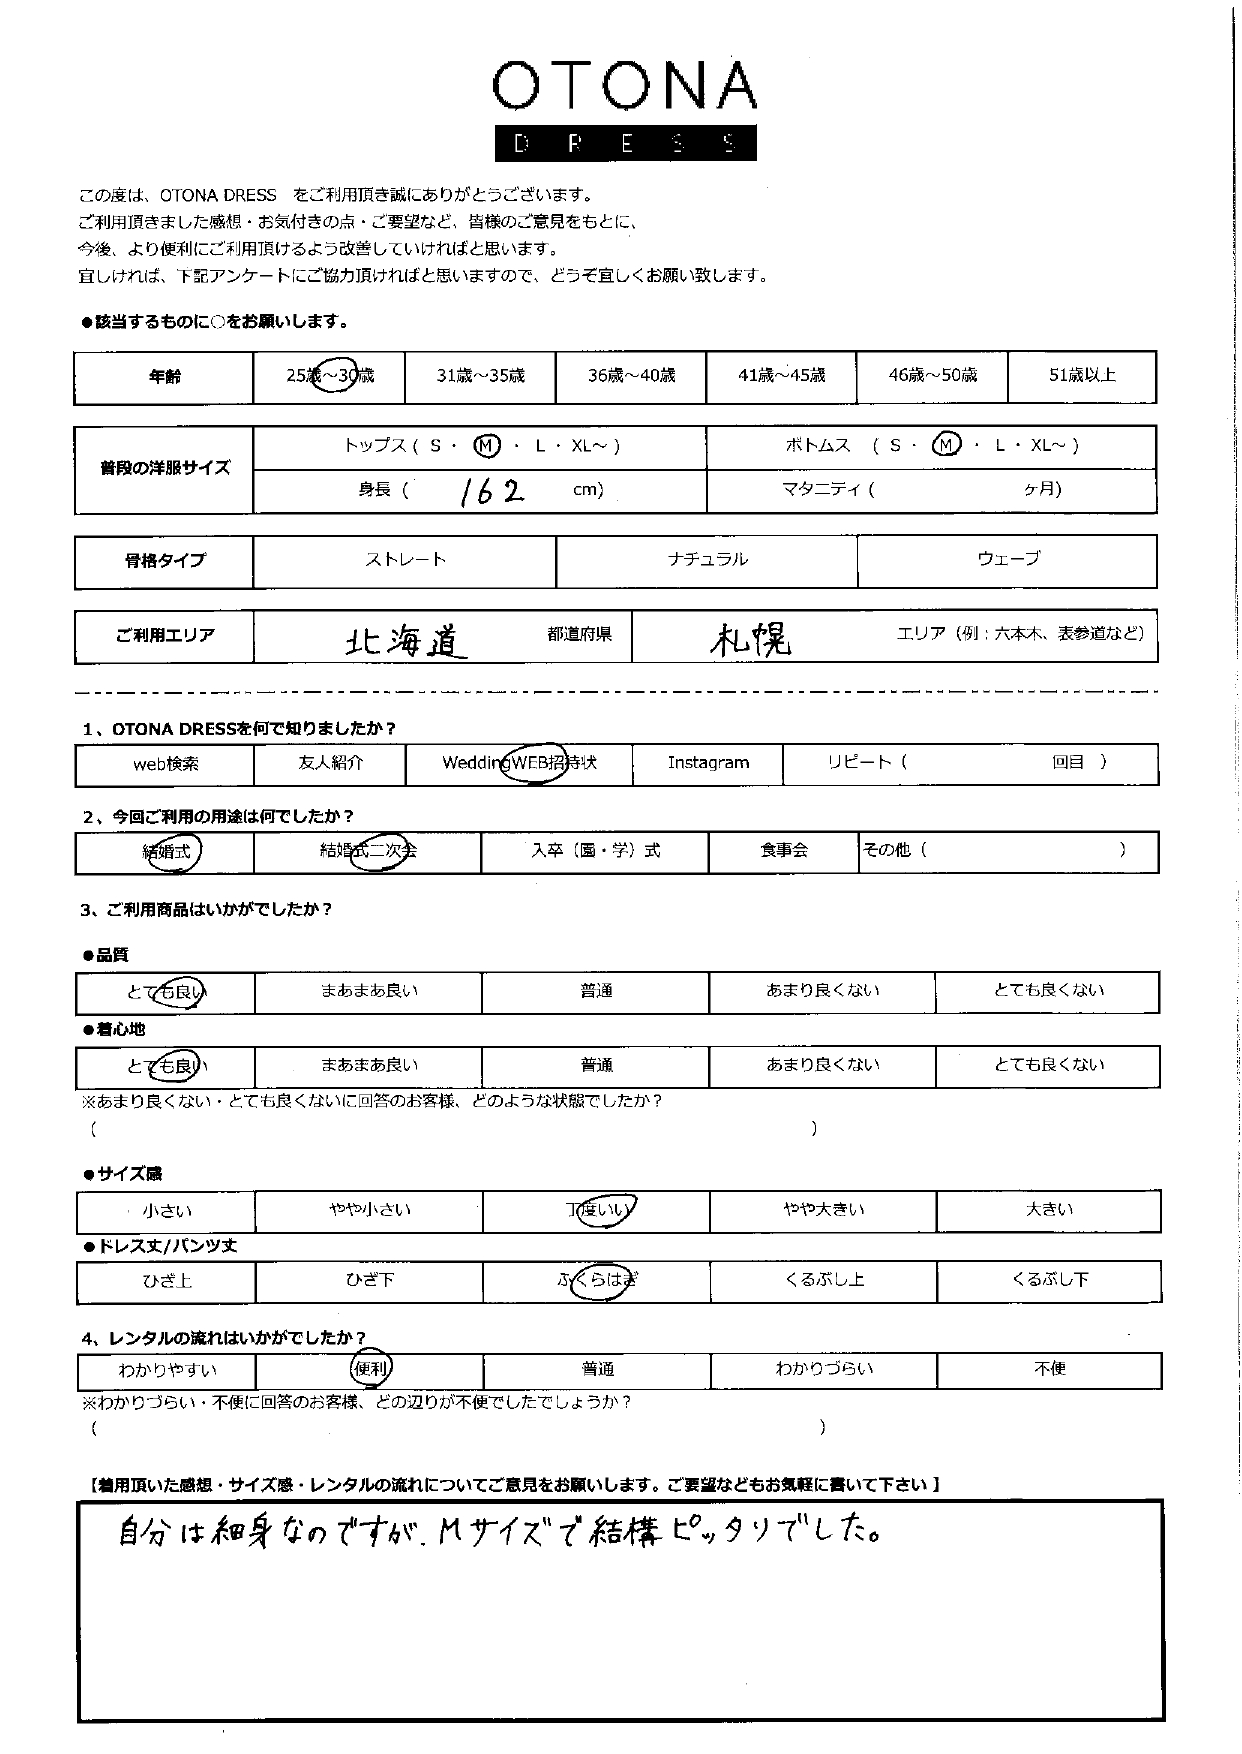 OTONA
DRESS
この度は、OTONA DRESS　をご利用頂き誠にありがとうございます。
ご利用頂きました感想・お気付きの点・ご要望など、皆様のご意見をもとに、
今後、より便利にご利用頂けるよう改善していければと思います。
宜しければ、下記アンケートにご協力頂ければと思いますので、どうぞ宜しくお願い致します。
●該当するものに○をお願いします。
年齢 25歳～30歳 31歳～35歳 36歳～40歳 41歳～45歳 46歳～50歳 51歳以上
普段の洋服サイズ トップス ( S ・ M ・ L ・ XL～ ) ボトムス ( S ・ M ・ L ・ XL～ )
身長 ( 162 cm) マタニティ ( ヶ月)
骨格タイプ ストレート ナチュラル ウェーブ
ご利用エリア 北海道 都道府県 札幌 エリア（例：六本木、表参道など）
1、OTONA DRESSを何で知りましたか？
web検索 友人紹介 WeddingWEB招待状 Instagram リピート ( 回目 )
2、今回ご利用の用途は何でしたか？
結婚式 結婚式二次会 入卒（園・学）式 食事会 その他 ( )
3、ご利用商品はいかがでしたか？
●品質
とても良い まあまあ良い 普通 あまり良くない とても良くない
●着心地
とても良い まあまあ良い 普通 あまり良くない とても良くない
※あまり良くない・とても良くないに回答のお客様、どのような状態でしたか？
( )
●サイズ感
小さい やや小さい 丁度いい やや大きい 大きい
●ドレス丈/パンツ丈
ひざ上 ひざ下 ふくらはぎ くるぶし上 くるぶし下
4、レンタルの流れはいかがでしたか？
わかりやすい 便利 普通 わかりづらい 不便
※わかりづらい・不便に回答のお客様、どの辺りが不便でしたでしょうか？
( )
【着用頂いた感想・サイズ感・レンタルの流れについてご意見をお願いします。ご要望などもお気軽に書いて下さい】
自分は細身なのですが、Mサイズで結構ピッタリでした。